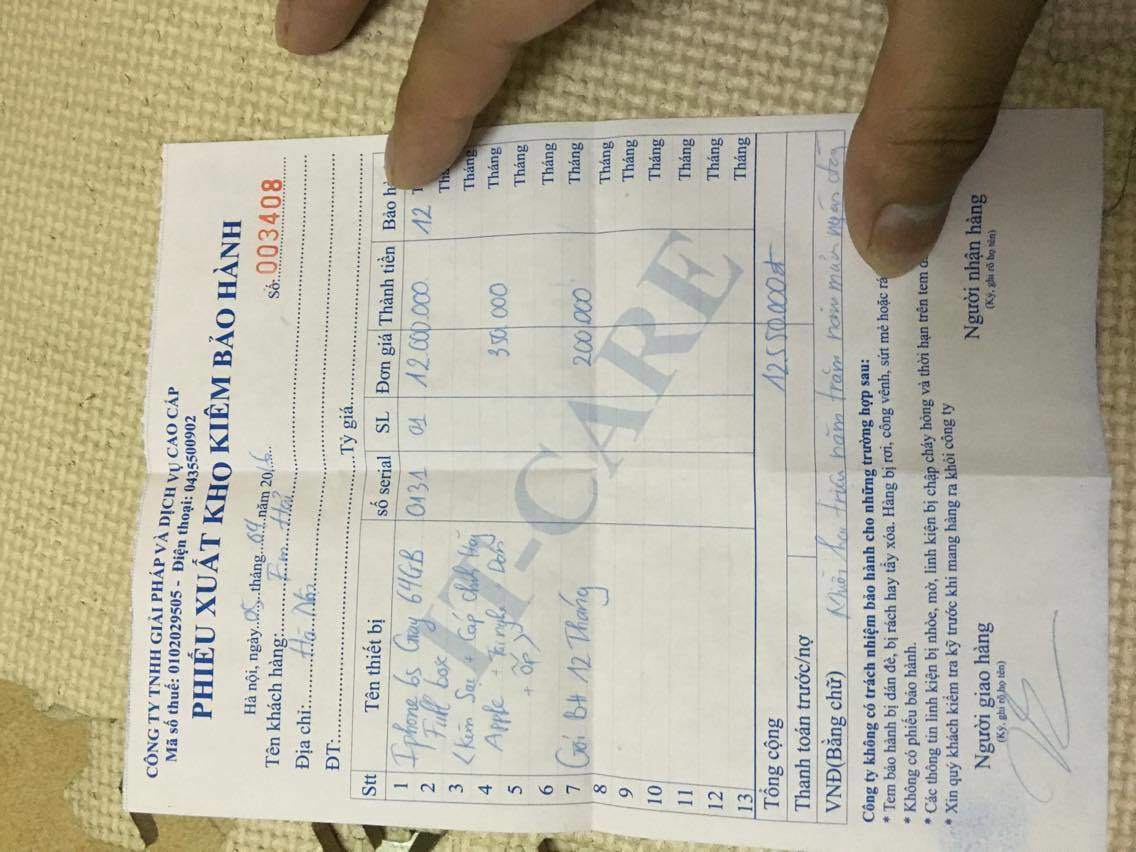 CÔNG TY TNHH GIẢI PHÁP VÀ DỊCH VỤ CAO CẤP
Mã số thuế: 0102029505 - Điện thoại: 0435500902
PHIẾU XUẤT KHO KIÊM BẢO HÀNH
Hà nội, ngày 05 tháng 04 năm 2016
Số: 003408
Tên khách hàng: Em Hải
Địa chỉ: Hà Nội
ĐT: Tỷ giá
Stt Tên thiết bị số serial SL Đơn giá Thành tiền Bảo h
1 Iphone 6s Gray 64GB 0131 01 12.000.000 12
2 Full box Th
3 (Kèm Sạc + Cáp chính hãng Tháng
4 Apple + Tai nghe 350.000 Tháng
5 + ốp, Dán) Tháng
6 Tháng
7 Gói BH 12 Tháng 200.000 Tháng
8 Tháng
9 Tháng
10 Tháng
11 Tháng
12 Tháng
13 Tháng
IT-CARE
Tổng cộng 12.550.000đ
Thanh toán trước/nợ
VNĐ(Bằng chữ) Mười hai triệu năm trăm năm mươi ngàn đồng
Công ty không có trách nhiệm bảo hành cho những trường hợp sau:
* Tem bảo hành bị dán đè, bị rách hay tẩy xóa. Hàng bị rơi, công vênh, sứt mẻ hoặc rá
* Không có phiếu bảo hành.
* Các thông tin linh kiện bị nhòe, mờ, linh kiện bị chập cháy hỏng và thời hạn trên tem
* Xin quý khách kiểm tra kỹ trước khi mang hàng ra khỏi công ty
Người giao hàng Người nhận hàng
(Ký, ghi rõ họ tên) (Ký, ghi rõ họ tên)